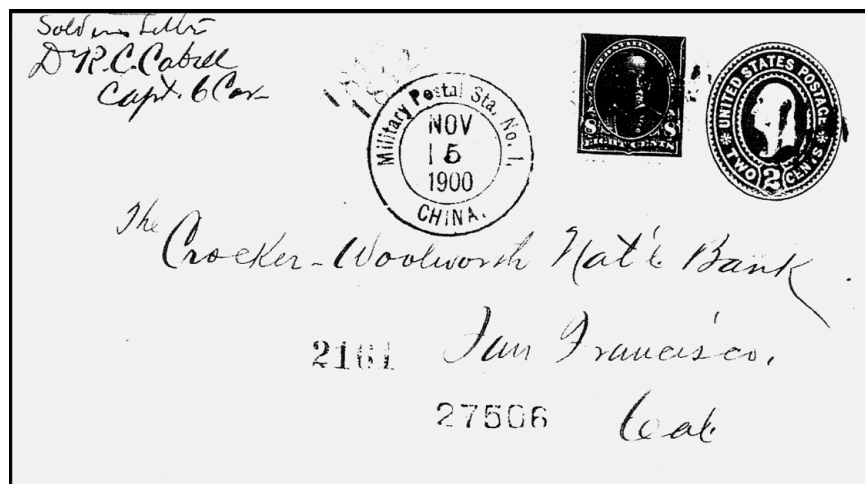 Soldiers Letter
De R. C. Cabell
Capt. 6 Cav
Military Postal Sta. No. 1,
NOV
15
1900
CHINA.
UNITED STATES POSTAGE
8 8
EIGHT CENTS
UNITED STATES POSTAGE
TWO 2 CENTS
The
Crocker-Woolworth Nat'l Bank
San Francisco,
2161
27506
Cal